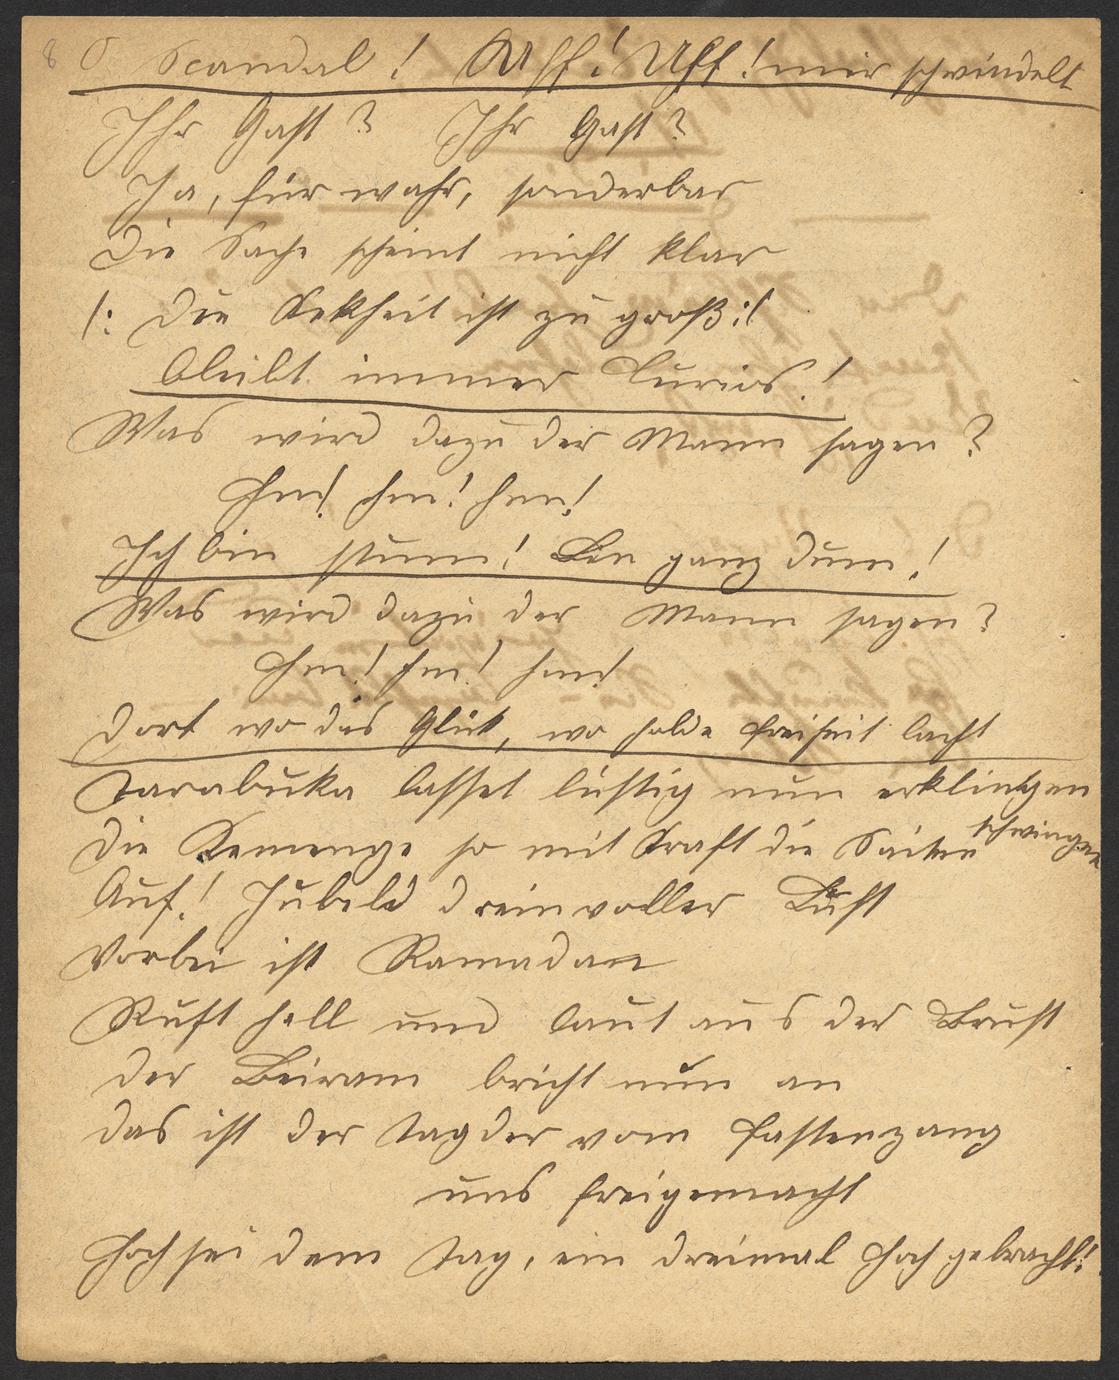 8 O Scandal! Uff! Uff! mir schwindelt
Ihr Gast? Ihr Gast?
Ja, für wahr, sonderbar
Die Sache scheint nicht klar
/: Die Kekheit ist zu groß :/
bleibt immer Curios!
Was wird dazu der Mann sagen?
Hm! hm! hm!
Ich bin stumm! Bin ganz dumm!
Was wird dazu der Mann sagen?
Hm! hm! hm!
Dort wo das Glück, wo holde Freiheit lacht
Tarabuka lasset lustig nun erklingen
Die Kemenge so mit Kraft die Saiten schwingen
Auf! Jubeld drein voller Lust
Vorbei ist Ramadan
Ruft hell und laut aus der Brust
der Beiram bricht nun an
das ist der Tag der vom Fastenzang
uns freigemacht
Hoch sei dem Tag, ein dreimal Hoch gebracht!